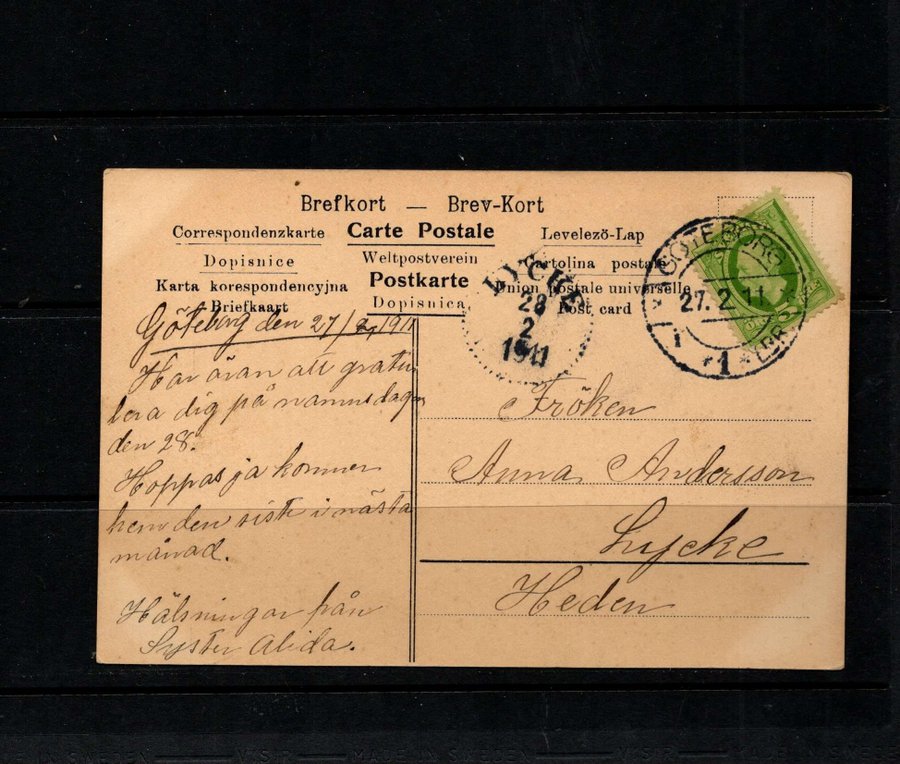 Brefkort — Brev-Kort
Correspondenzkarte Carte Postale Levelezö-Lap
Dopisnice Weltpostverein Cartolina postale
Karta korespondencyjna Postkarte Union postale universelle
Briefkaart Dopisnica Post card
LYCKE
28
2
1911
GÖTEBORG
27. 2. 11
1
LBR.
Göteborg den 27/2 1911
Har äran att gratu
lera dig på namnsdagen
den 28.
Hoppas ja kommer
hem den sist i nästa
månad.
Hälsningar från
Syster Alida.
Fröken
Anna Andersson
Lycke
Heden
V.S.P. — MADE IN SWEDEN — V.S.P.